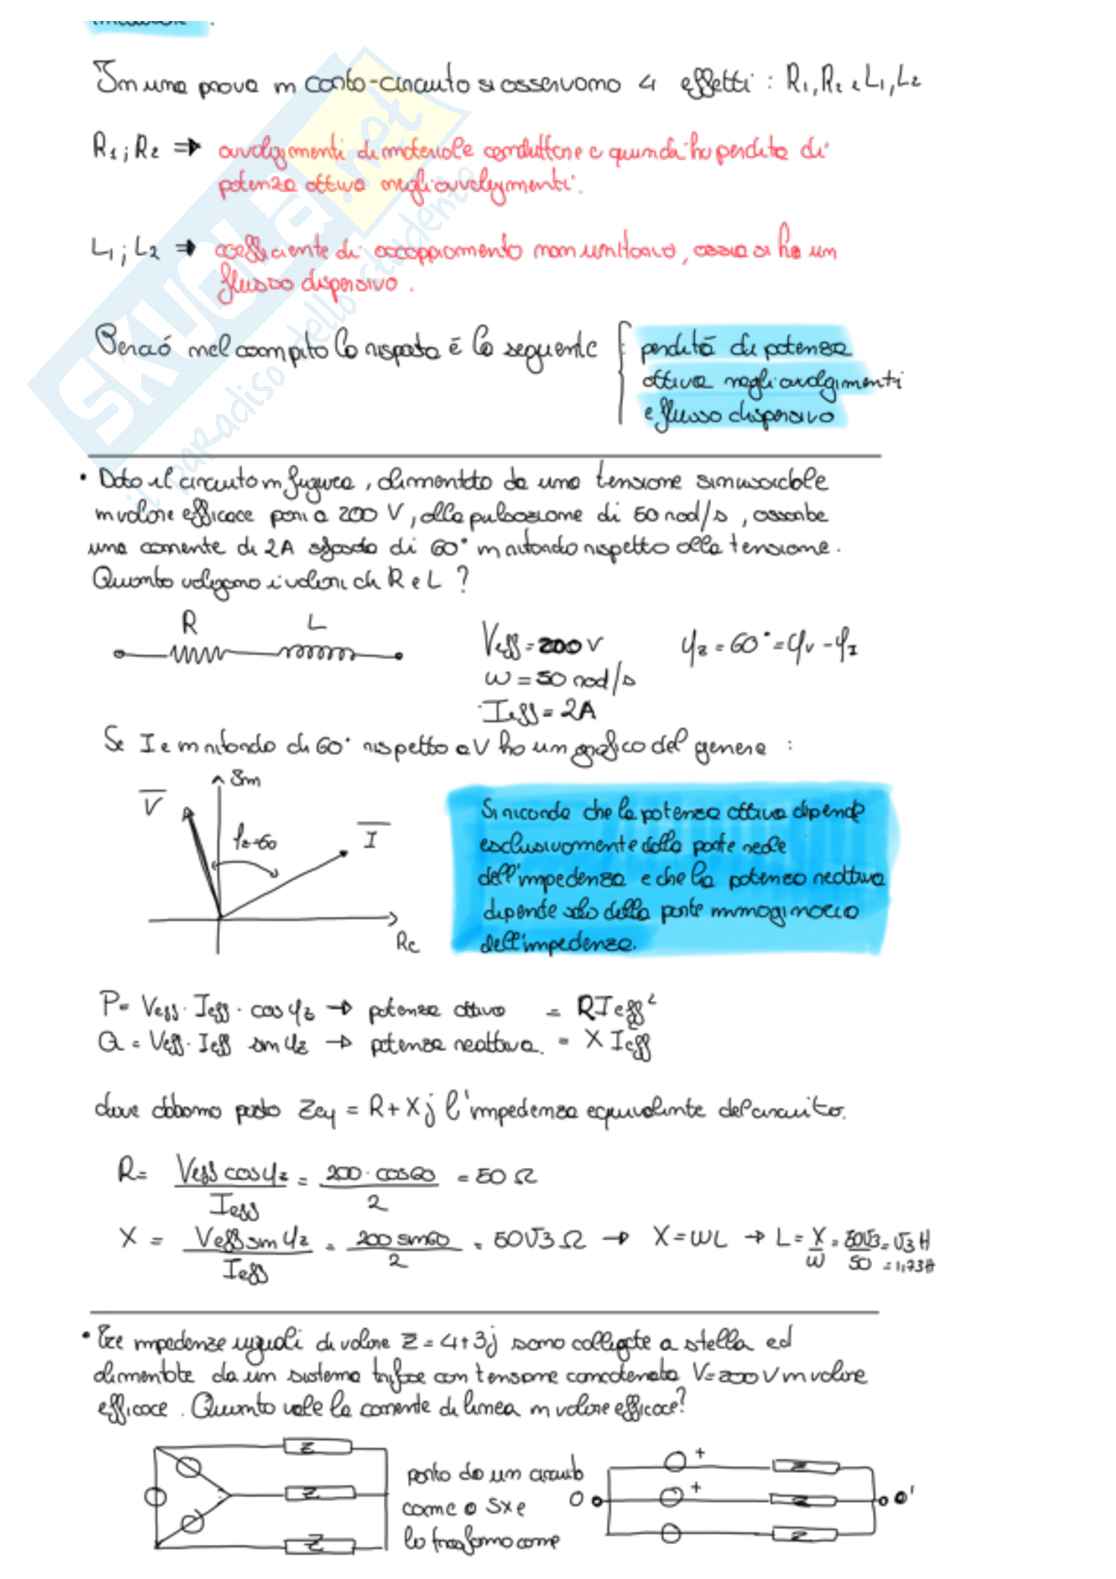 In una prova in corto-circuito si osservano 4 effetti : R1, R2 e L1, L2
R1; R2 ⇒ avvolgimenti di materiale conduttore e quindi ho perdita di
potenza attiva negli avvolgimenti.
L1; L2 ⇒ coefficiente di accoppiamento non unitario, ossia si ha un
flusso dispersivo.
Perciò nel compito la risposta è la seguente { perdita di potenza
attiva negli avvolgimenti
e flusso dispersivo
SKUOLA.net
il paradiso dello studente
• Dato il circuito in figura, alimentato da una tensione sinusoidale
in valore efficace pari a 200 V, alla pulsazione di 50 rad/s, assorbe
una corrente di 2A sfasata di 60° in ritardo rispetto alla tensione.
Quanto valgono i valori di R e L ?
R L
Veff = 200 V φz = 60° = φV - φI
ω = 50 rad/s
Ieff = 2A
Se I è in ritardo di 60° rispetto a V ho un grafico del genere :
Im
V
φz=60
I
Re
Si ricorda che la potenza attiva dipende
esclusivamente dalla parte reale
dell'impedenza e che la potenza reattiva
dipende solo dalla parte immaginaria
dell'impedenza.
P = Veff · Ieff · cos φz → potenza attiva = R Ieff²
Q = Veff · Ieff sin φz → potenza reattiva. = X Ieff²
dove abbiamo posto Zeq = R + Xj l'impedenza equivalente del circuito.
R = Veff cos φz / Ieff = 200 · cos60 / 2 = 50 Ω
X = Veff sin φz / Ieff = 200 sin60 / 2 = 50√3 Ω → X = ωL → L = X/ω = 50√3/50 = √3 H
= 1,73 H
• Tre impedenze uguali di valore Z = 4+3j sono collegate a stella ed
alimentate da un sistema trifase con tensione concatenata V=200 V in valore
efficace. Quanto vale la corrente di linea in valore efficace?
Z
Z
Z
parto da un circuito
come a sx e
lo trasformo come
O + + Z Z Z O'